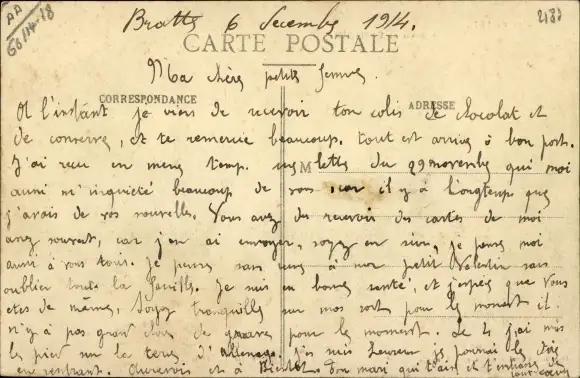 AA
66/14-18
2183
Bratte 6 Decembre 1914.
CARTE POSTALE
Ma chère petite femme.
CORRESPONDANCE
ADRESSE
A l'instant je viens de recevoir ton colis de chocolat et
de conserve, et te remercie beaucoup. tout est arrivé à bon port.
M
J'ai reçu en meme temps une lettre du 29 novembre qui moi
aussi m'inquiété beaucoup de vous, car il y a longtemps que
j'avais de vos nouvelles. Vous avez du recevoir des cartes de moi
assez souvent, car j'en ai envoyer, soyez en sur, je pense moi
aussi à vous tous. Je pense sans cesse à mon petit Valentin sans
oublier toute la famille. Je suis en bonne santé, et j'espère que vous
etes de même, Soyez tranquille sur mon sort pour le moment il
n'y à pas grand chose de grave pour le moment. Le 4 j'ai mis
les pied sur la terre d'Allemagne. J'en suis heureux
en rentrant. Aurevoir et à Bientôt. Ton mari qui t'aime et
tout coeur